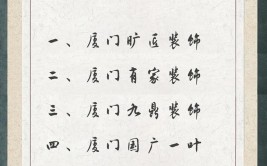 一、厦门旷匠装饰
二、厦门有家装饰
三、厦门九鼎装饰
四、厦门国广一叶